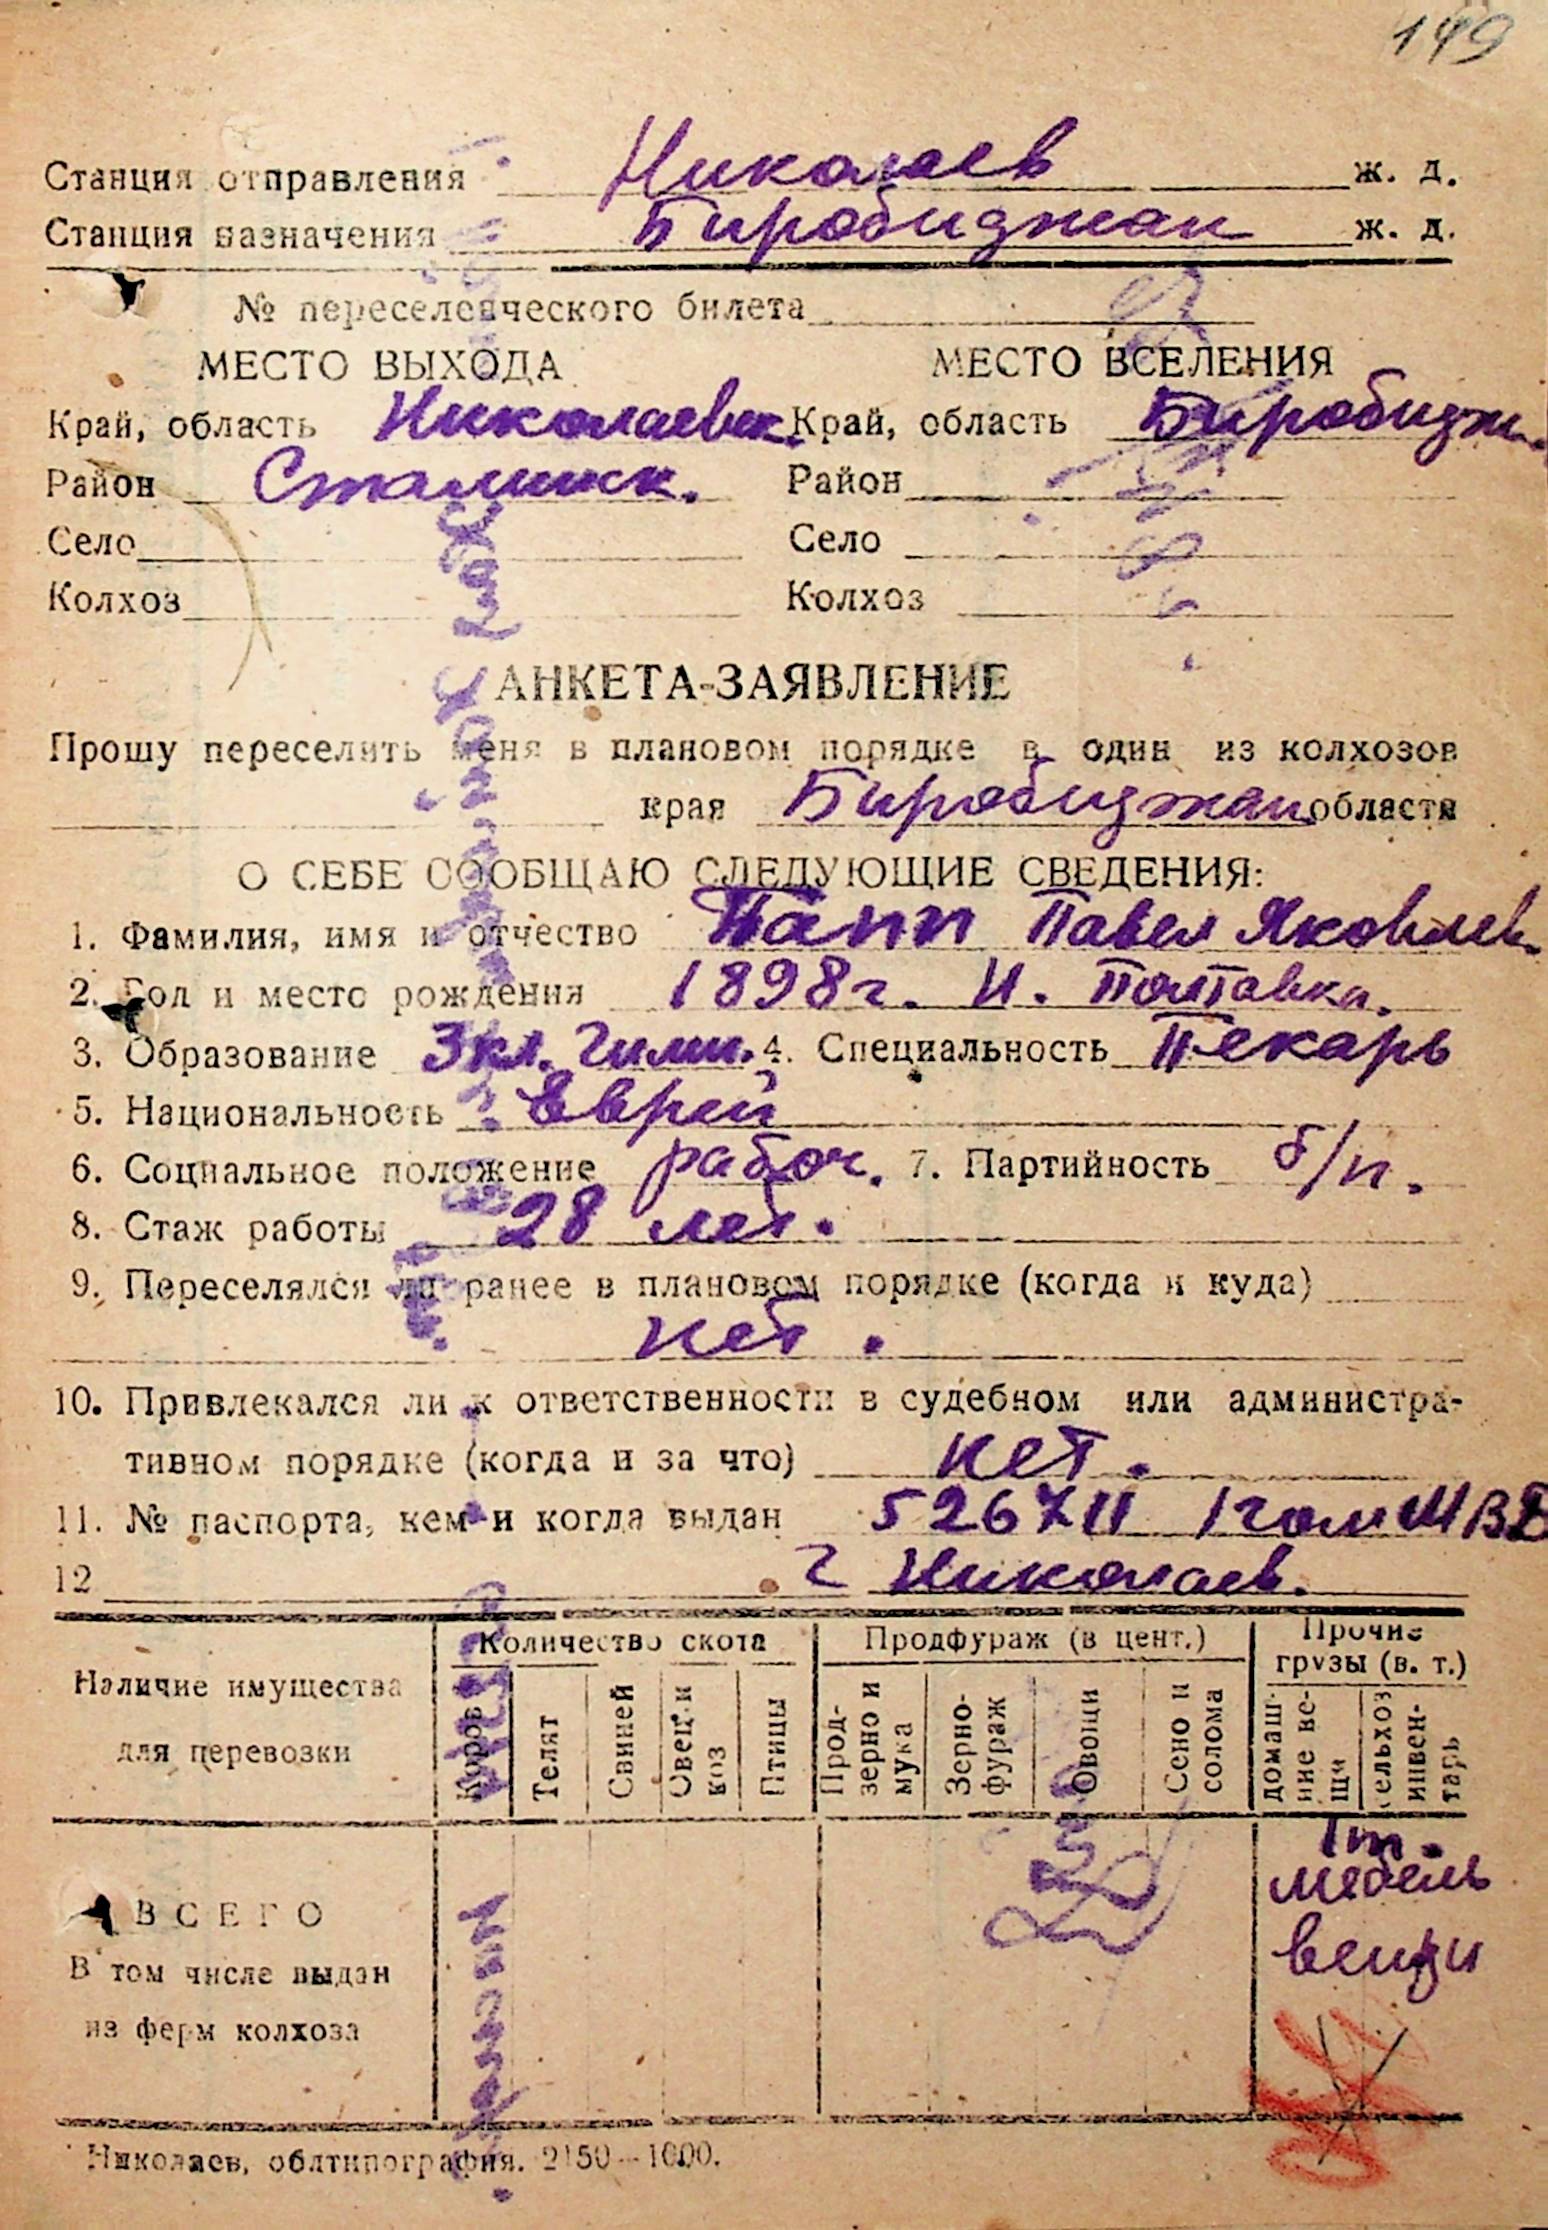 149
Станция отправления Николаев ж. д.
Станция назначения Биробиджан ж. д.
№ переселенческого билета
МЕСТО ВЫХОДА МЕСТО ВСЕЛЕНИЯ
Край, область Николаевск. Край, область Биробидж.
Район Сталинск. Район
Село Село
Колхоз Колхоз
АНКЕТА-ЗАЯВЛЕНИЕ
Прошу переселить меня в плановом порядке в один из колхозов
края Биробиджан области
О СЕБЕ СООБЩАЮ СЛЕДУЮЩИЕ СВЕДЕНИЯ:
1. Фамилия, имя и отчество Папп Павел Яковлев.
2. Год и место рождения 1898 г. Н. Полтавка.
3. Образование 3 кл. Гимн. 4. Специальность Пекарь
5. Национальность Еврей
6. Социальное положение рабоч. 7. Партийность б/п.
8. Стаж работы 28 лет.
9. Переселялся ли ранее в плановом порядке (когда и куда)
нет.
10. Привлекался ли к ответственности в судебном или администра-
тивном порядке (когда и за что) нет.
11. № паспорта, кем и когда выдан 1 гом МВД
12 г Николаев.
Наличие имущества для перевозки
Количество скота
Коров Телят Свиней Овец и коз Птицы
Продфураж (в цент.)
Прод-зерно и мука Зерно-фураж Овощи Сено и солома
Прочие грузы (в. т.)
домаш-ние ве-щи сельхоз инвен-тарь
ВСЕГО 1 т.
мебель
вещи
В том числе выдан
из ферм колхоза
Николаев, облтипография. 2150—1000.